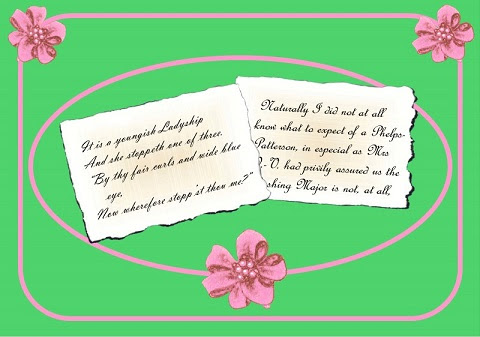 It is a youngish Ladyship
And she stoppeth one of three.
"By thy fair curls and wide blue
eye,
Now wherefore stopp'st thou me?"
Naturally I did not at all
know what to expect of a Phelps-
Patterson, in especial as Mrs
Q.-V. had privily assured us the
shing Major is not, at all,